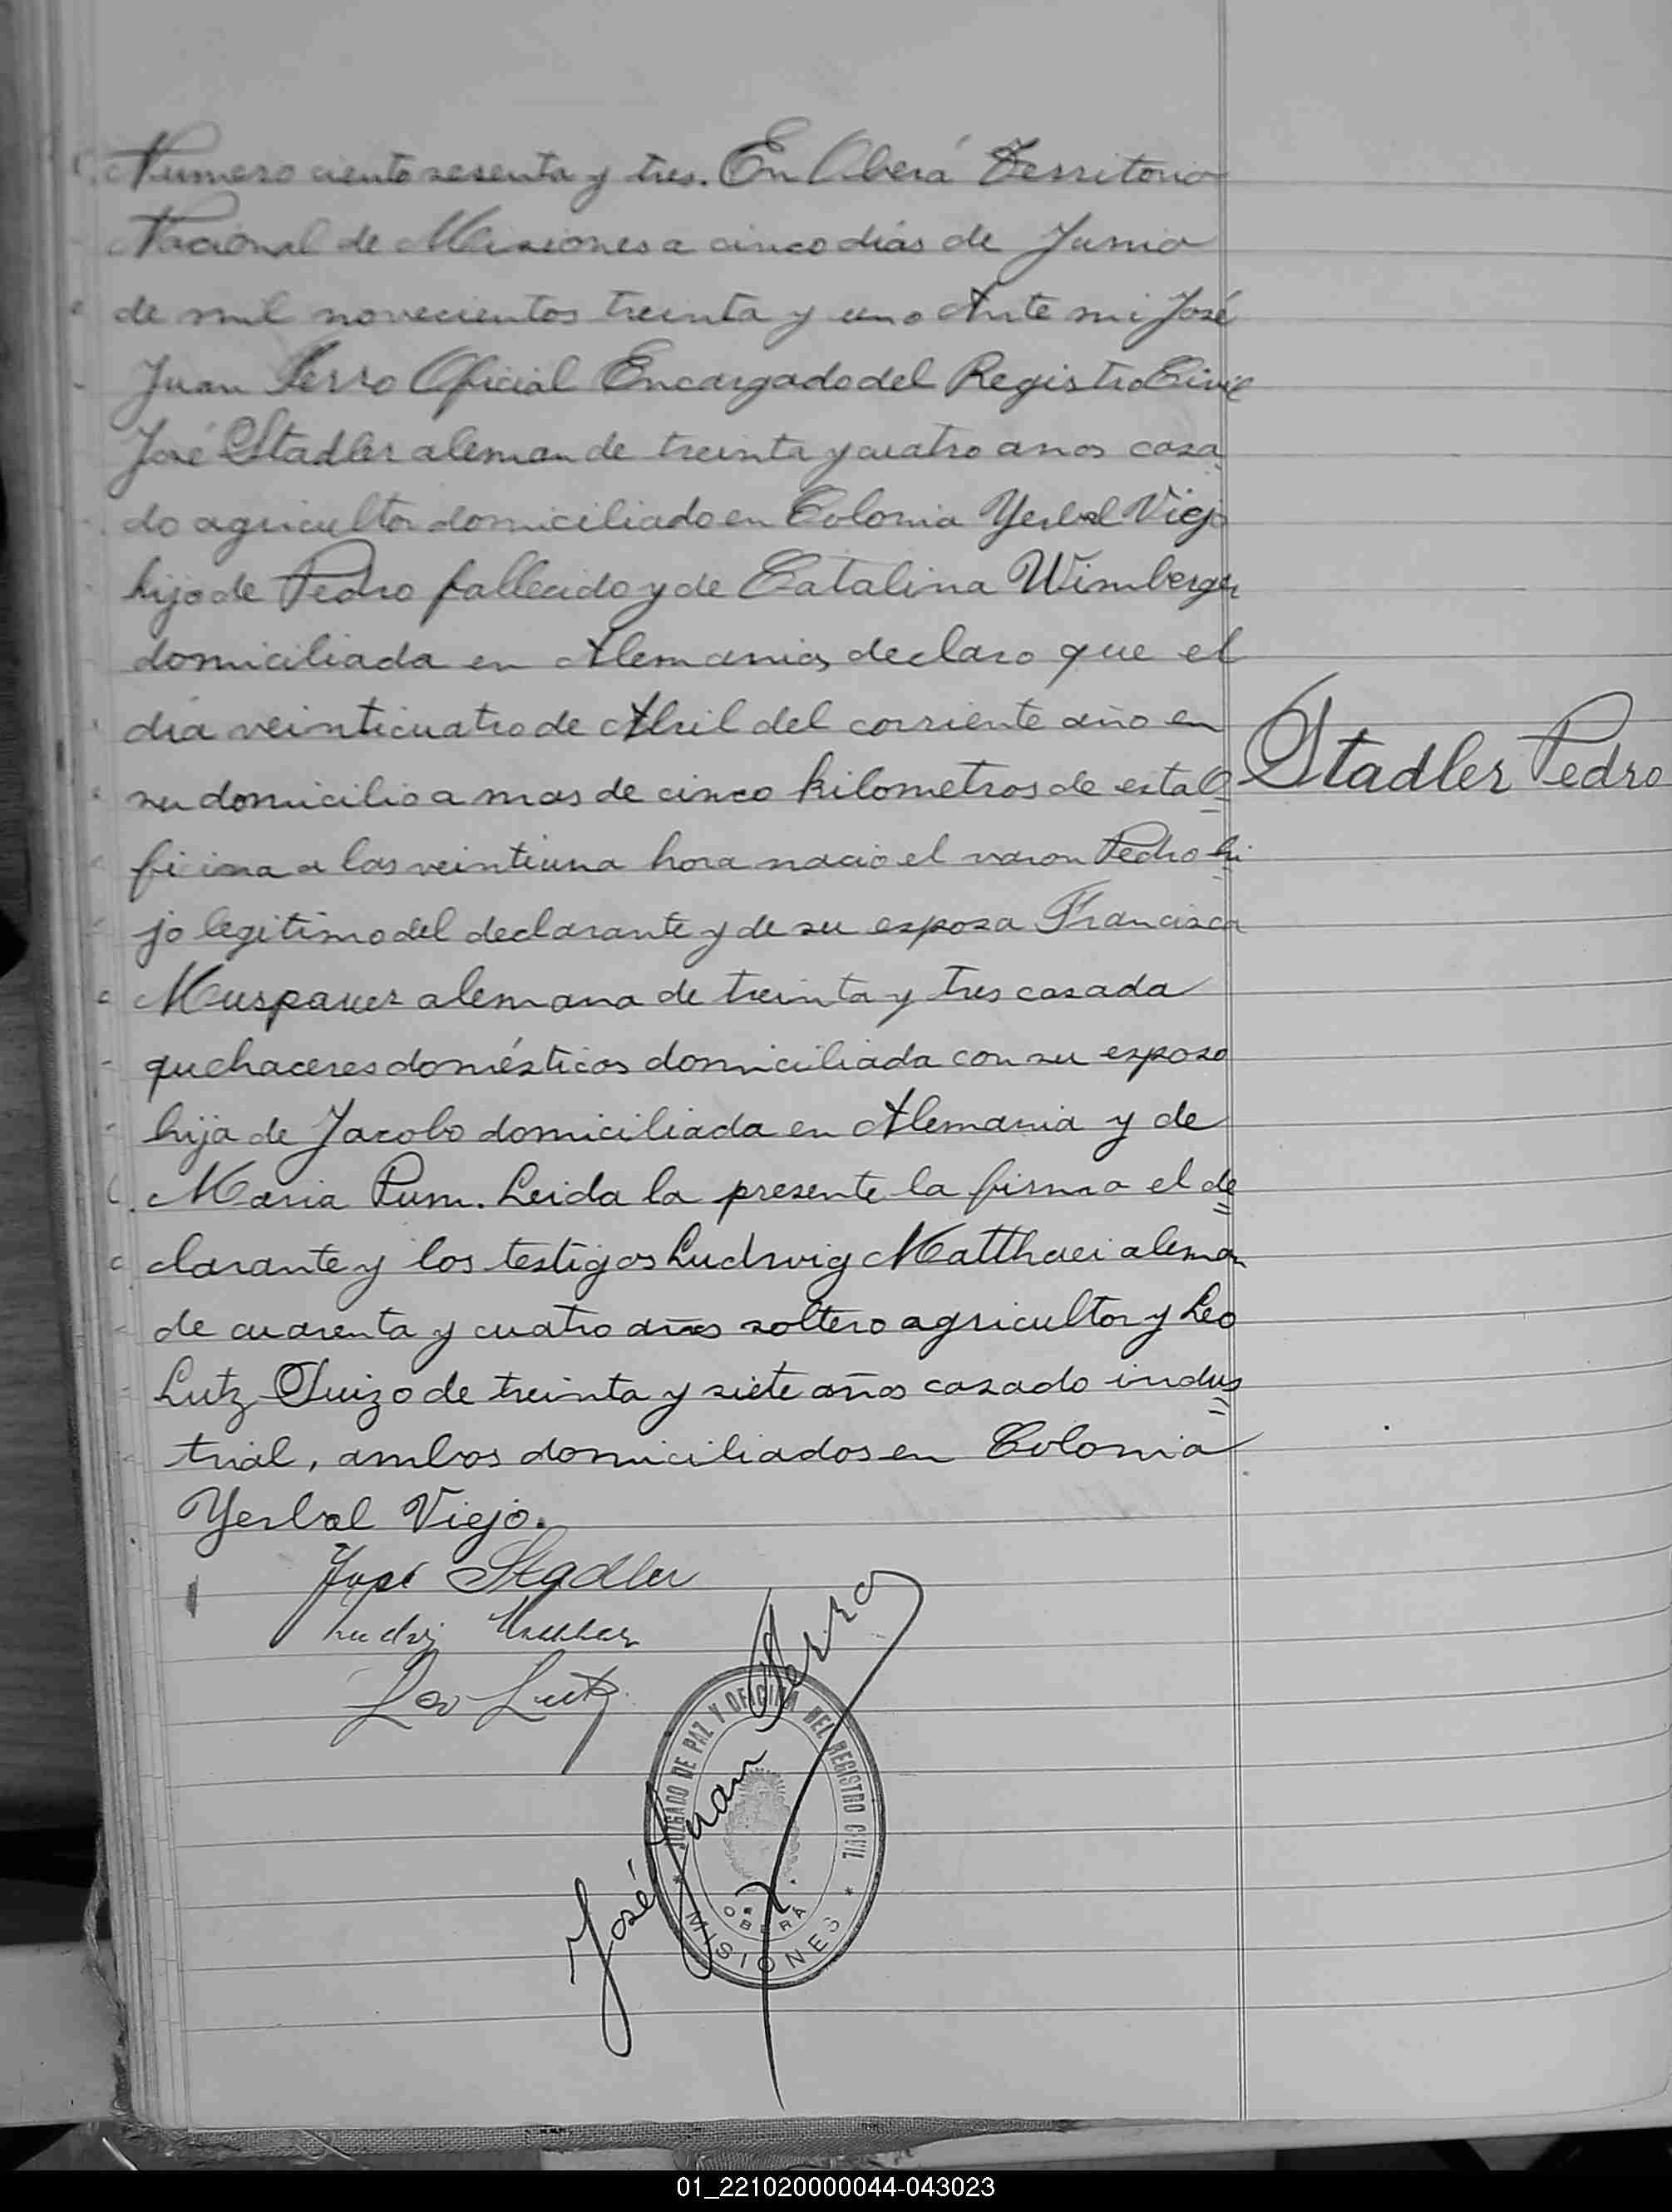 Numero ciento sesenta y tres. En Oberá Territorio
Nacional de Misiones a cinco dias de Junio
de mil novecientos treinta y uno Ante mi José
Juan Serro Oficial Encargado del Registro Civil
José Stadler aleman de treinta y cuatro anos casa
do agricultor domiciliado en Colonia Yerbal Viejo
hijo de Pedro fallecido y de Catalina Wimberger
domiciliada en Alemania, declaro que el
dia veinticuatro de Abril del corriente año en
su domicilio a mas de cinco kilometros de esta O
Stadler Pedro
ficina a las veintiuna hora nacio el varon Pedro hi
jo legitimo del declarante y de su esposa Francisca
Muspauer alemana de treinta y tres casada
quehaceres domésticos domiciliada con su esposo
hija de Jacobo domiciliada en Alemania y de
Maria Pum. Leida la presente la firma el de
clarante y los testigos Ludwig Matthaei aleman
de cuarenta y cuatro años soltero agricultor y Leo
Lutz Suizo de treinta y siete años casado indus
trial, ambos domiciliados en Colonia
Yerbal Viejo.
José Stadler
Leo Lutz
José Juan Serro
JUZGADO DE PAZ Y OFICINA DEL REGISTRO CIVIL
OBERÁ
MISIONES
01_221020000044-043023